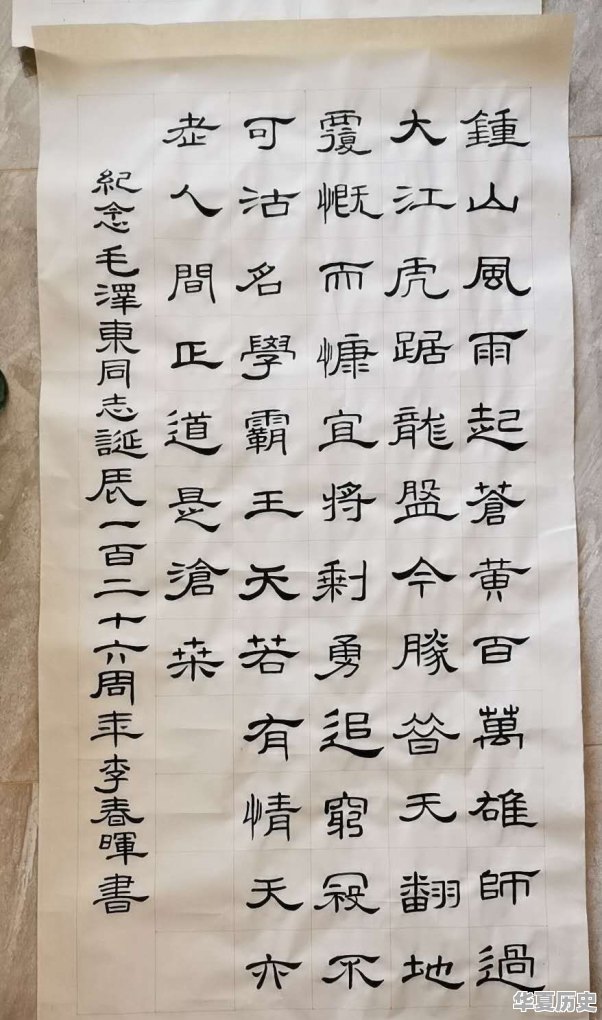 鍾山風雨起蒼黄百萬雄師過
大江虎踞龍盤今勝昔天翻地
覆慨而慷宜將剩勇追窮寇不
可沽名學霸王天若有情天亦
老人間正道是滄桑
紀念毛澤東同志誕辰一百二十六周年李春暉書
华夏历史